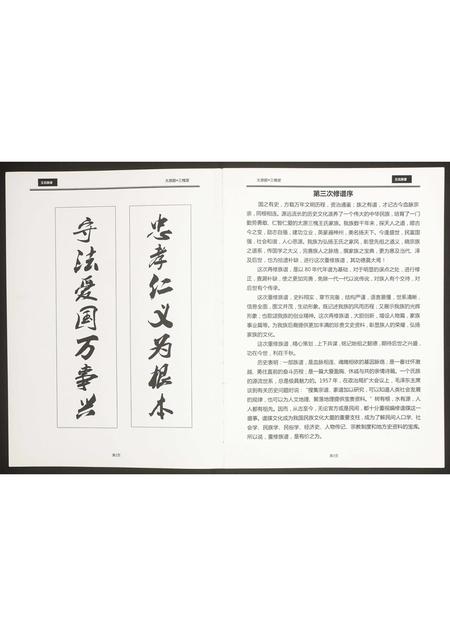 王氏族谱
太原郡•三槐堂
忠孝仁义为根本
守法爱国万事兴
第2页
太原郡•三槐堂
王氏族谱
第三次修谱序
国之有史，方载万年文明历程，资治通鉴；族之有谱，才记古今血脉宗
亲，同根相连。源远流长的历史文化滋养了一个伟大的中华民族，培育了一门
勤劳勇敢、仁智仁爱的太原三槐王氏家族。我族数千年来，探天人之道，顺古
今之变，励志自强，建功立业，英豪遍神州，美名扬天下。今逢盛世，民富国
强，社会和谐，人心思源。我族为弘扬王氏之家风，彰显先祖之遗义，晓宗族
之谱系，传国学之大义，完善族人之脉络，撰家族之宝典，更为惠及当代、泽
及后世，也为拾遗补缺，进行这次重修族谱，其功德莫大焉！
这次再修族谱，是以 80 年代年谱为基础，对于明显的误点之处，进行修
正，查漏补缺，使之更加完善，免除一代一代以讹传讹，对族人有个交待，对
后世有个传承。
这次重修族谱，史料翔实，章节完备，结构严谨，语言晓懂，世系清晰，
信息全面，图文并茂，生动形象。既记述我族的风雨历程；又展示我族的光辉
形象；也歌颂我族的创业精神。这次再修族谱，大胆创新，增设人物篇，家族
事业篇等。为我族后裔提供更加丰满的珍贵文史资料，彰显族人的荣耀，弘扬
家族的文化。
这次重修族谱，精心策划，上下共谋，铭记始祖之懿德，期待后世之兴盛，
功在今世，利在千秋。
历史表明：一部族谱，是血脉相连、魂魄相依的基因脉络；是一番壮怀激
越、勇往直前的奋斗历程；是一篇大爱盈胸、休戚与共的亲情诗篇。一个民族
的源流世系，总是极具魅力的。1957 年，在政治局扩大会议上，毛泽东主席
谈到有关历史问题时说：“搜集宗谱、家谱加以研究，可以知道人类社会发展
的规律，也可以为人文地理、聚落地理提供宝贵资料。”树有根，水有源，人
人都有祖先。因而，从古至今，无论官方或是民间，都十分重视编修谱牒这一
盛事。谱牒文化成为我国民族文化大厦的重要支柱，成为了解民间人口学、社
会学、民族学、民俗学、经济史、人物传记、宗教制度和地方史资料的宝库。
所以说，重修族谱，是有价之为。
第3页